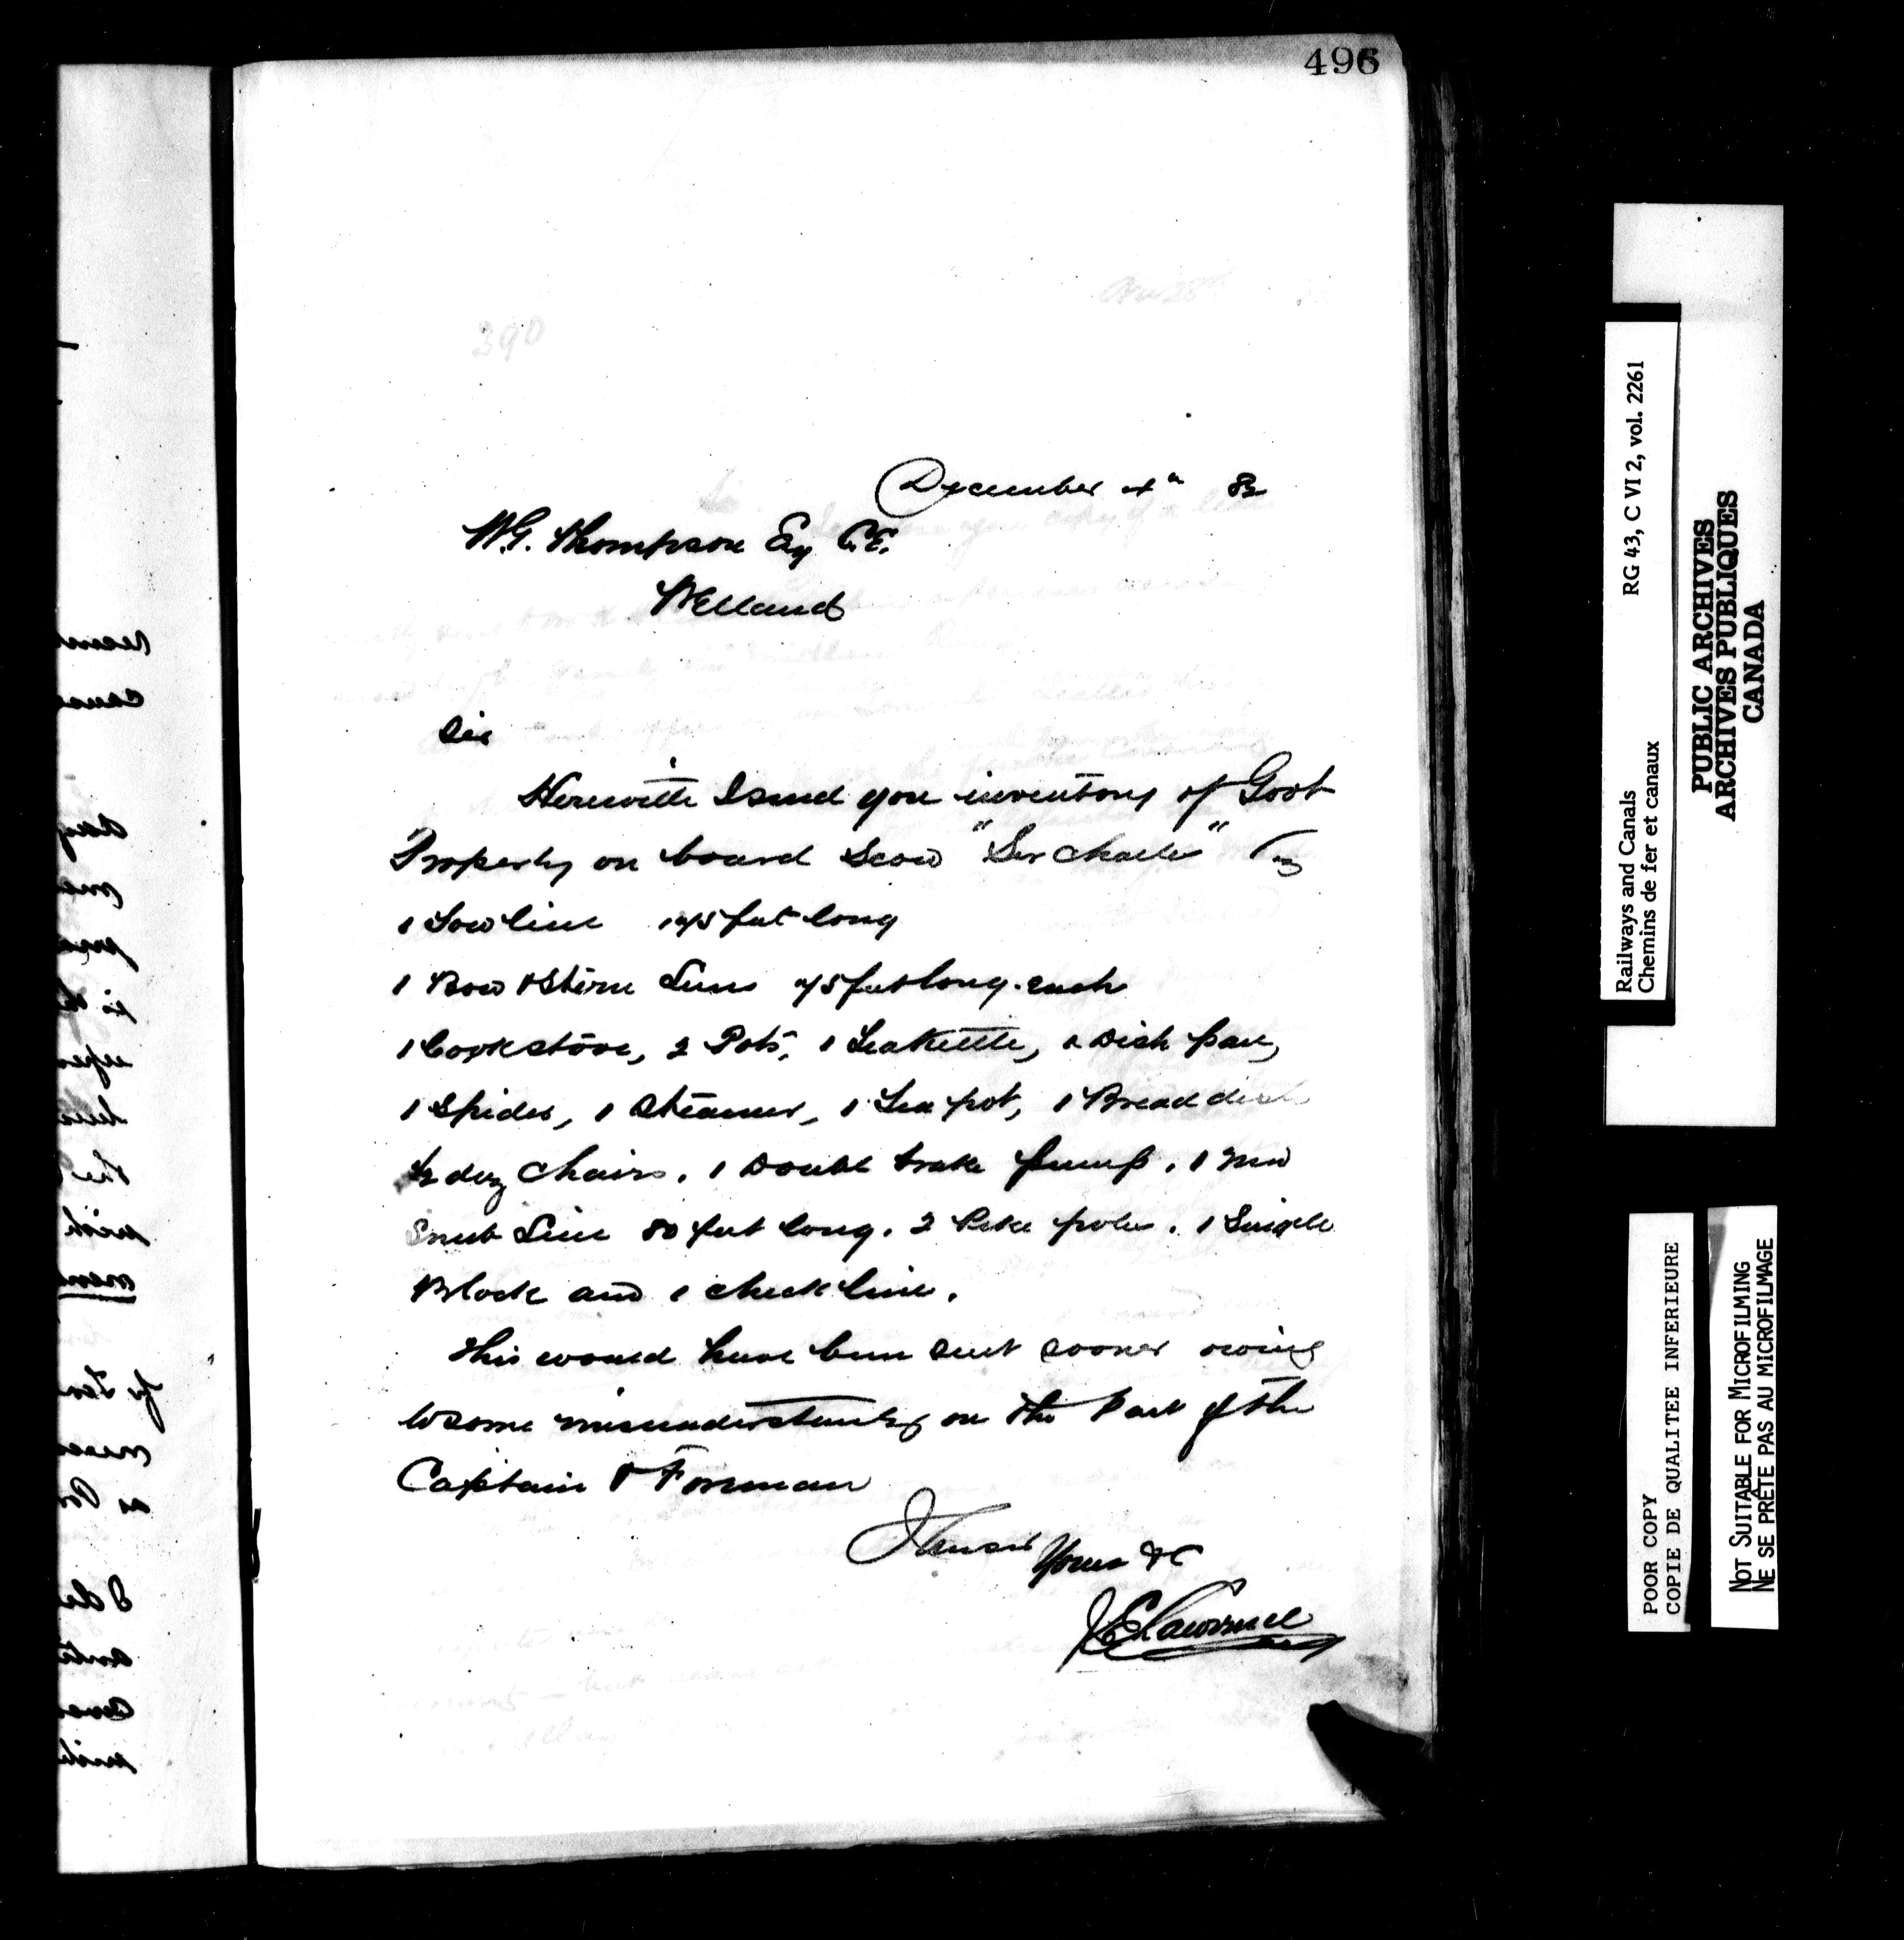 496
390
December 4th 82
W.G. Thompson Esq C.E.
Welland
Sir
Herewith I send you inventory of Govt
Property on board Scow "Sir Charles" viz
1 Tow line 175 feet long
1 Bow & Stern Lines 75 feet long each
1 Cookstove, 2 Pots, 1 Teakettle, 1 Dish pan,
1 Spider, 1 Steamer, 1 Tea pot, 1 Bread dish
½ doz Chairs. 1 Double brake pump. 1 new
Snub Line 80 feet long. 2 Pike poles. 1 Single
Block and 1 check line.
This would have been sent sooner owing
to some misunderstanding on the part of the
Captain & Foreman
Yours &c
RG 43, C VI 2, vol. 2261
Railways and Canals
Chemins de fer et canaux
PUBLIC ARCHIVES
ARCHIVES PUBLIQUES
CANADA
POOR COPY
COPIE DE QUALITEE INFERIEURE
NOT SUITABLE FOR MICROFILMING
NE SE PRÊTE PAS AU MICROFILMAGE